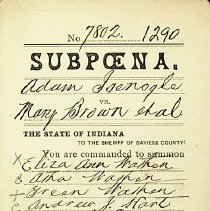 No. 7802. 1290
SUBPŒNA.
Adam Isenogle
vs.
Mary Brown et al
THE STATE OF INDIANA
TO THE SHERIFF OF DAVIESS COUNTY:
You are commanded to summon
X Eliza Ann Wathen
Wathen
Green Wathen
Andrew J. Hart